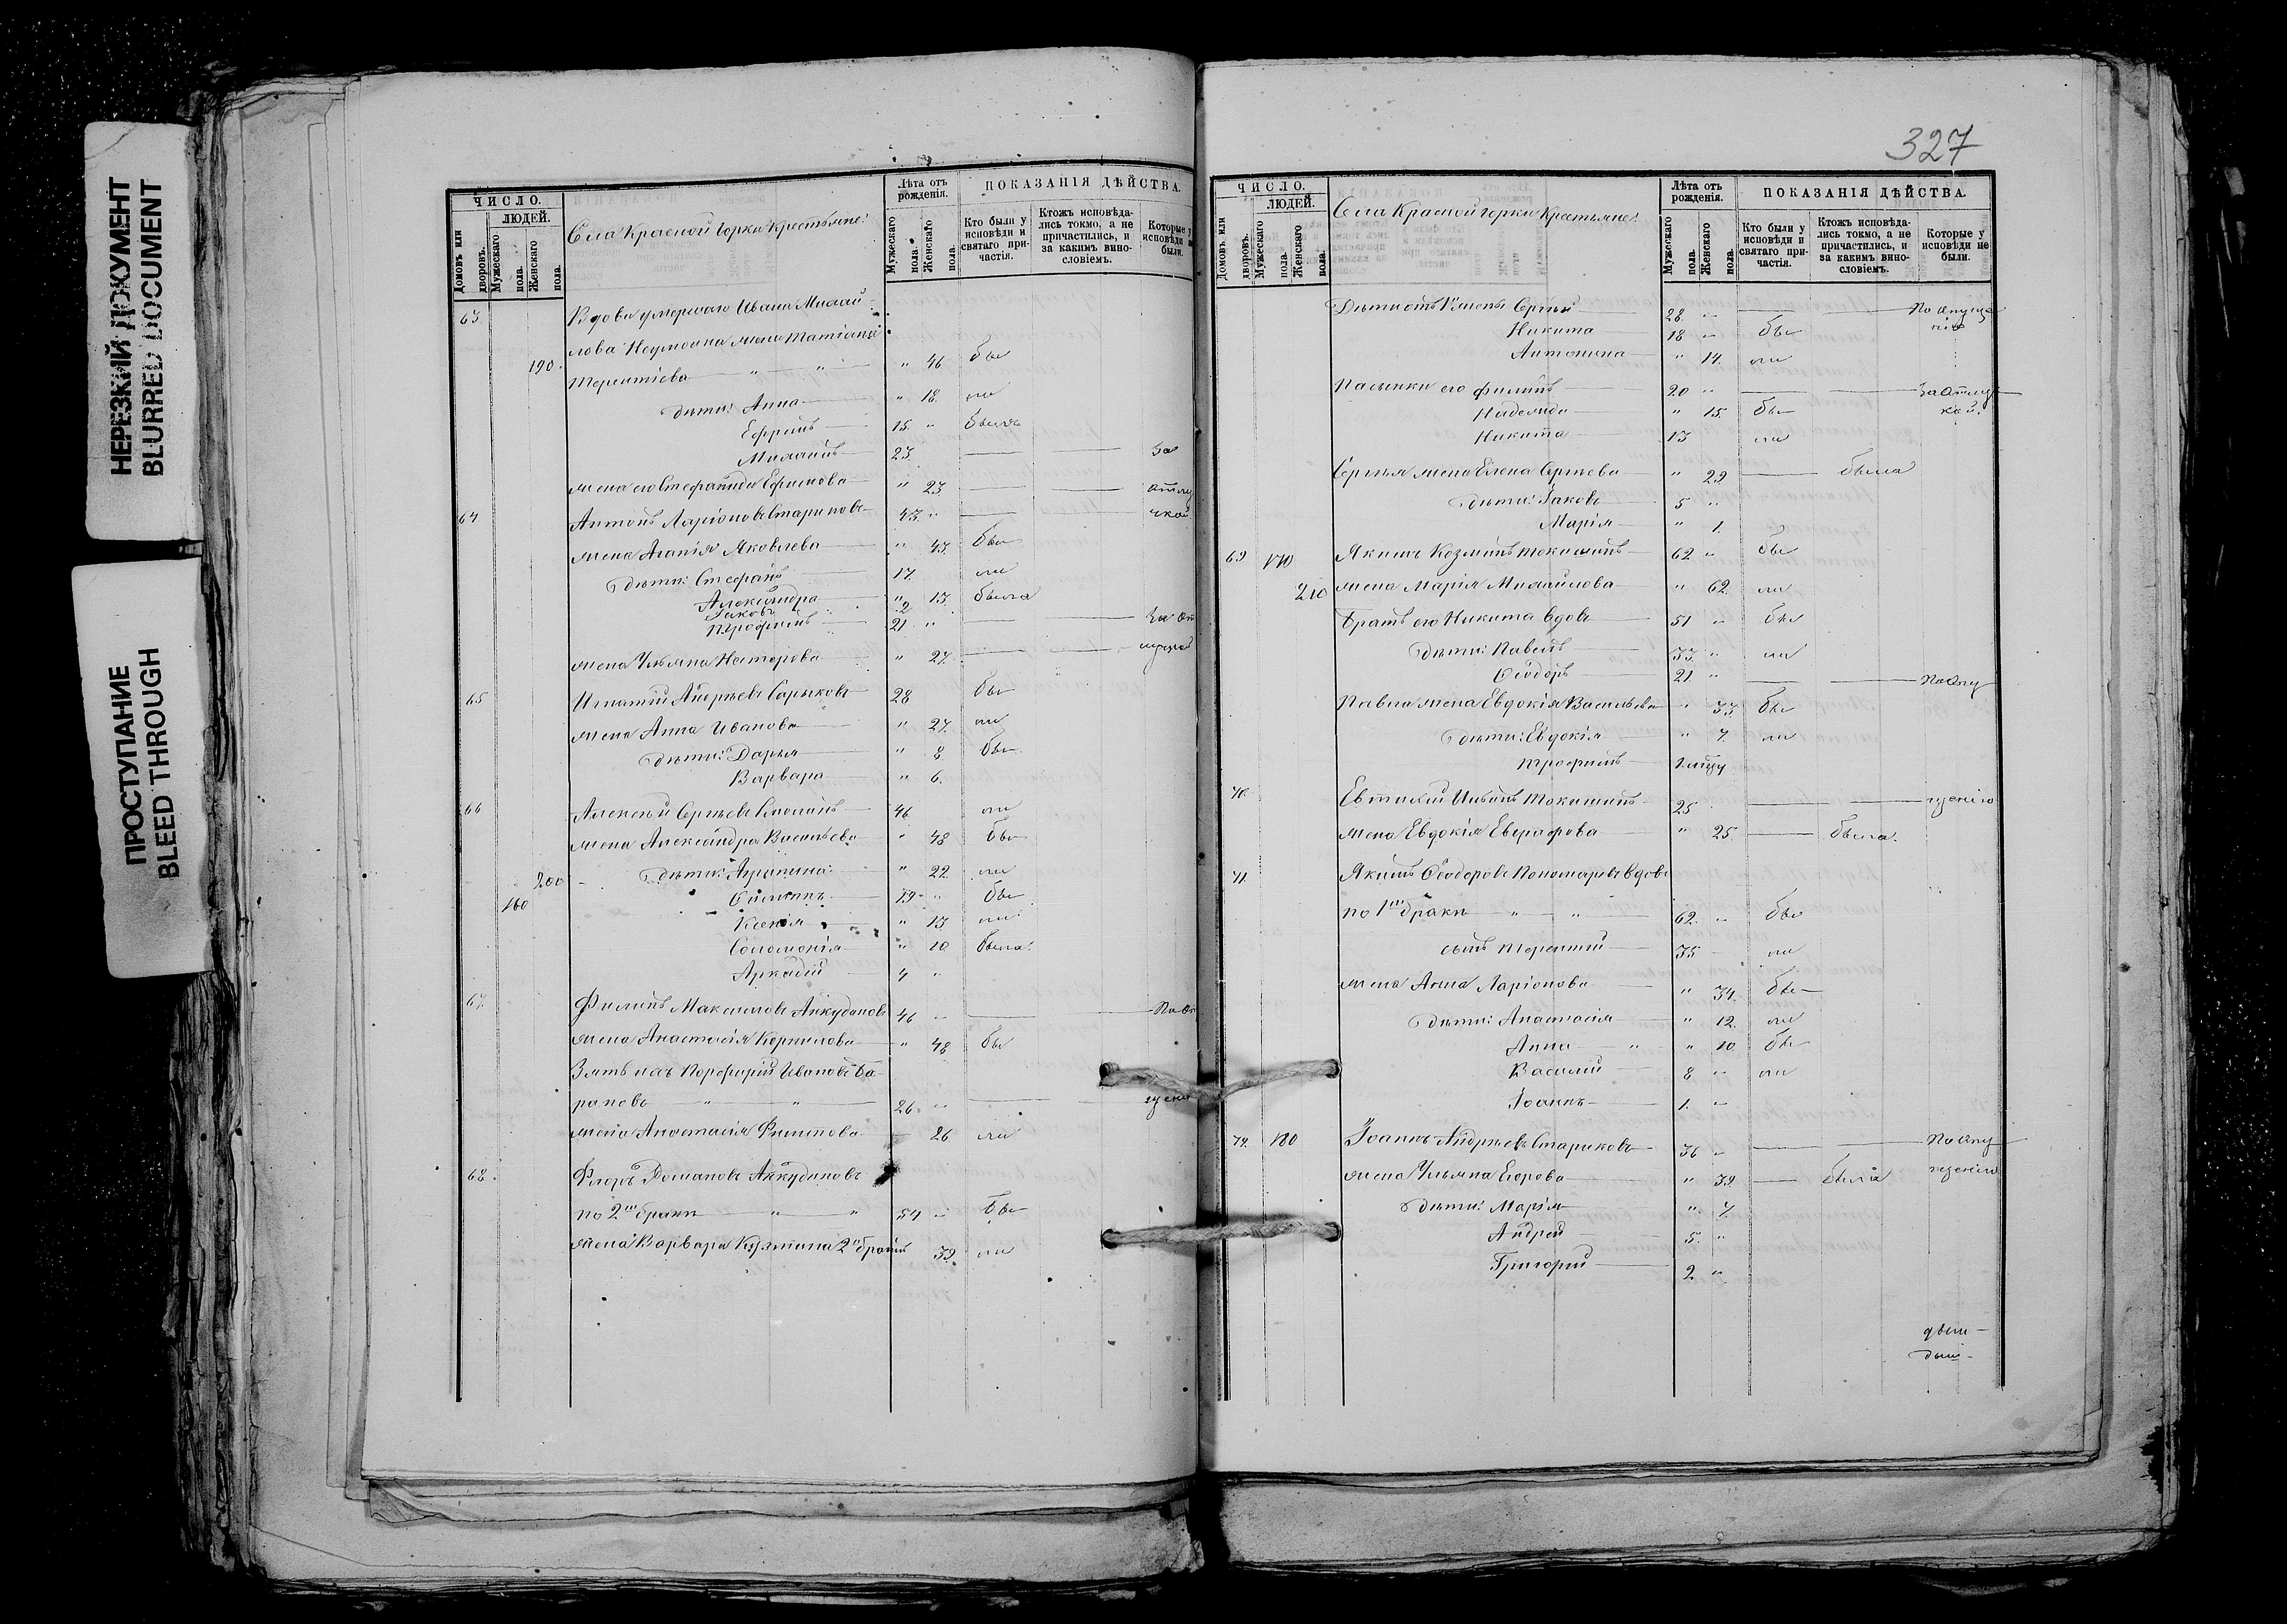 НЕРЕЗКИЙ ДОКУМЕНТ
BLURRED DOCUMENT
ПРОСТУПАНИЕ
BLEED THROUGH
ЧИСЛО.
ЛЮДЕЙ.
Домовъ или дворовъ.
Мужескаго пола.
Женскаго пола.
Села Красной Горки Крестьяне:
Лѣта отъ рожденія.
Мужескаго пола.
Женскаго пола.
ПОКАЗАНІЯ ДѢЙСТВА.
Кто были у исповѣди и святаго причастія.
Ктожъ исповѣдались токмо, а не причастились, и за какимъ винословіемъ.
Которые у исповѣди не были.
63 Вдова умершаго Ивана Михай-
лова жена Татіана
190 Терентіева " " " 46 бы
дѣти: Анна " 18 ли
Ефремъ 15 " былъ
Михаилъ 23 за
жена его Стефанида Ефимова " 23 отлу
64 Антонъ Ларіоновъ Стариковъ 43 " чкой
жена Агапія Яковлева " 43 бы
дѣти: Стефанъ 17 ли
Александра " 13 была
Іаковъ 2
Трофимъ 21 " за от
жена Ульяна Нестерова " 27 лучкой
65 Игнатій Андреевъ Сарыковъ 28 бы
жена Анна Иванова " 27 ли
дѣти: Дарья " 8 бы
Варвара " 6
66 Алексѣй Сергѣевъ 46 ли
жена Александра Васильева " 48 бы
200 дѣти: Агрипина " 22 ли
160 19 " бы
Ксенія " 13 ли
Соломонія " 10 была
Аркадій 4 "
67 Филипъ Максимовъ Анкудиновъ 46 " По оп
жена Анастасія Корнилова " 48 бы
Зять ихъ Порфирій Ивановъ Ба-
рановъ " " 26 " ущенію
жена Анастасія Филипова 26 ли
68 Флоръ Романовъ Анкудиновъ
по 2мъ бракѣ " " 54 " бы
жена Варвара Кузмина 2 брака 39 ли
327
ЧИСЛО.
ЛЮДЕЙ.
Домовъ или дворовъ.
Мужескаго пола.
Женскаго пола.
Села Красной Горки Крестьяне:
Лѣта отъ рожденія.
Мужескаго пола.
Женскаго пола.
ПОКАЗАНІЯ ДѢЙСТВА.
Кто были у исповѣди и святаго причастія.
Ктожъ исповѣдались токмо, а не причастились, и за какимъ винословіемъ.
Которые у исповѣди не были.
Дѣти отъ 1 жены Сергѣй 28 " По опуще
Никита 18 " бы нію
Антонина " 14 ли
Пасынки его Филипъ 20 " За отлуч
Надежда " 15 бы кой
Никита 13 ли
Сергѣя жена Елена Сергѣева " 29 была
дѣти: Іаковъ 5 "
Марія " 1
69 170 Якимъ Козминъ Токшинъ 62 " бы
210 жена Марія Михайлова " 62 ли
Братъ его Никита вдовъ 51 " бы
дѣти: Павелъ 33 " ли
Ѳеодоръ 21 " По опу
Павла жена Евдокія Васильева " 33 бы
дѣти: Евдокія " 7 ли
Трофимъ 1
70 Евтихій Ильинъ Токшинъ 25 щенію
жена Евдокія Евграфова " 25 была
71 Якимъ Ѳеодоровъ Пономаревъ вдовъ
по 1мъ бракѣ " " 62 " бы
сынъ Терентій 35 ли
жена Анна Ларіонова " 34 бы
дѣти: Анастасія " 12 ли
Анна " " 10 бы
Василій 8 " ли
Іоаннъ 1 "
72 180 Іоаннъ Андреевъ Стариковъ 36 " По опу
жена Ульяна Егорова " 39 была щенію
дѣти: Марія " 7
Андрей 5 "
Григорій 2 "